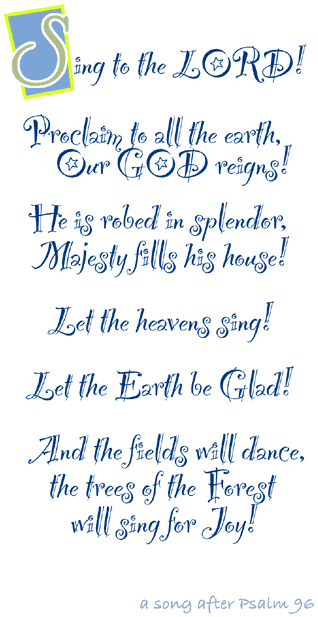 Sing to the LORD!
Proclaim to all the earth,
Our GOD reigns!
He is robed in splendor,
Majesty fills his house!
Let the heavens sing!
Let the Earth be Glad!
And the fields will dance,
the trees of the Forest
will sing for Joy!
a song after Psalm 96